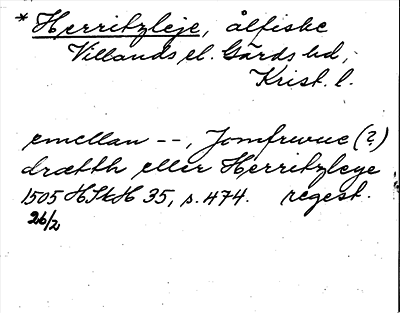 * Herritzleje, ålfiske
Villands el. Gärds hd,
Krist. l.
emellan --, Jomfrwue (?)
drætth eller Herritzleye
1505 HSkH 35, s. 474. regest.
26/2